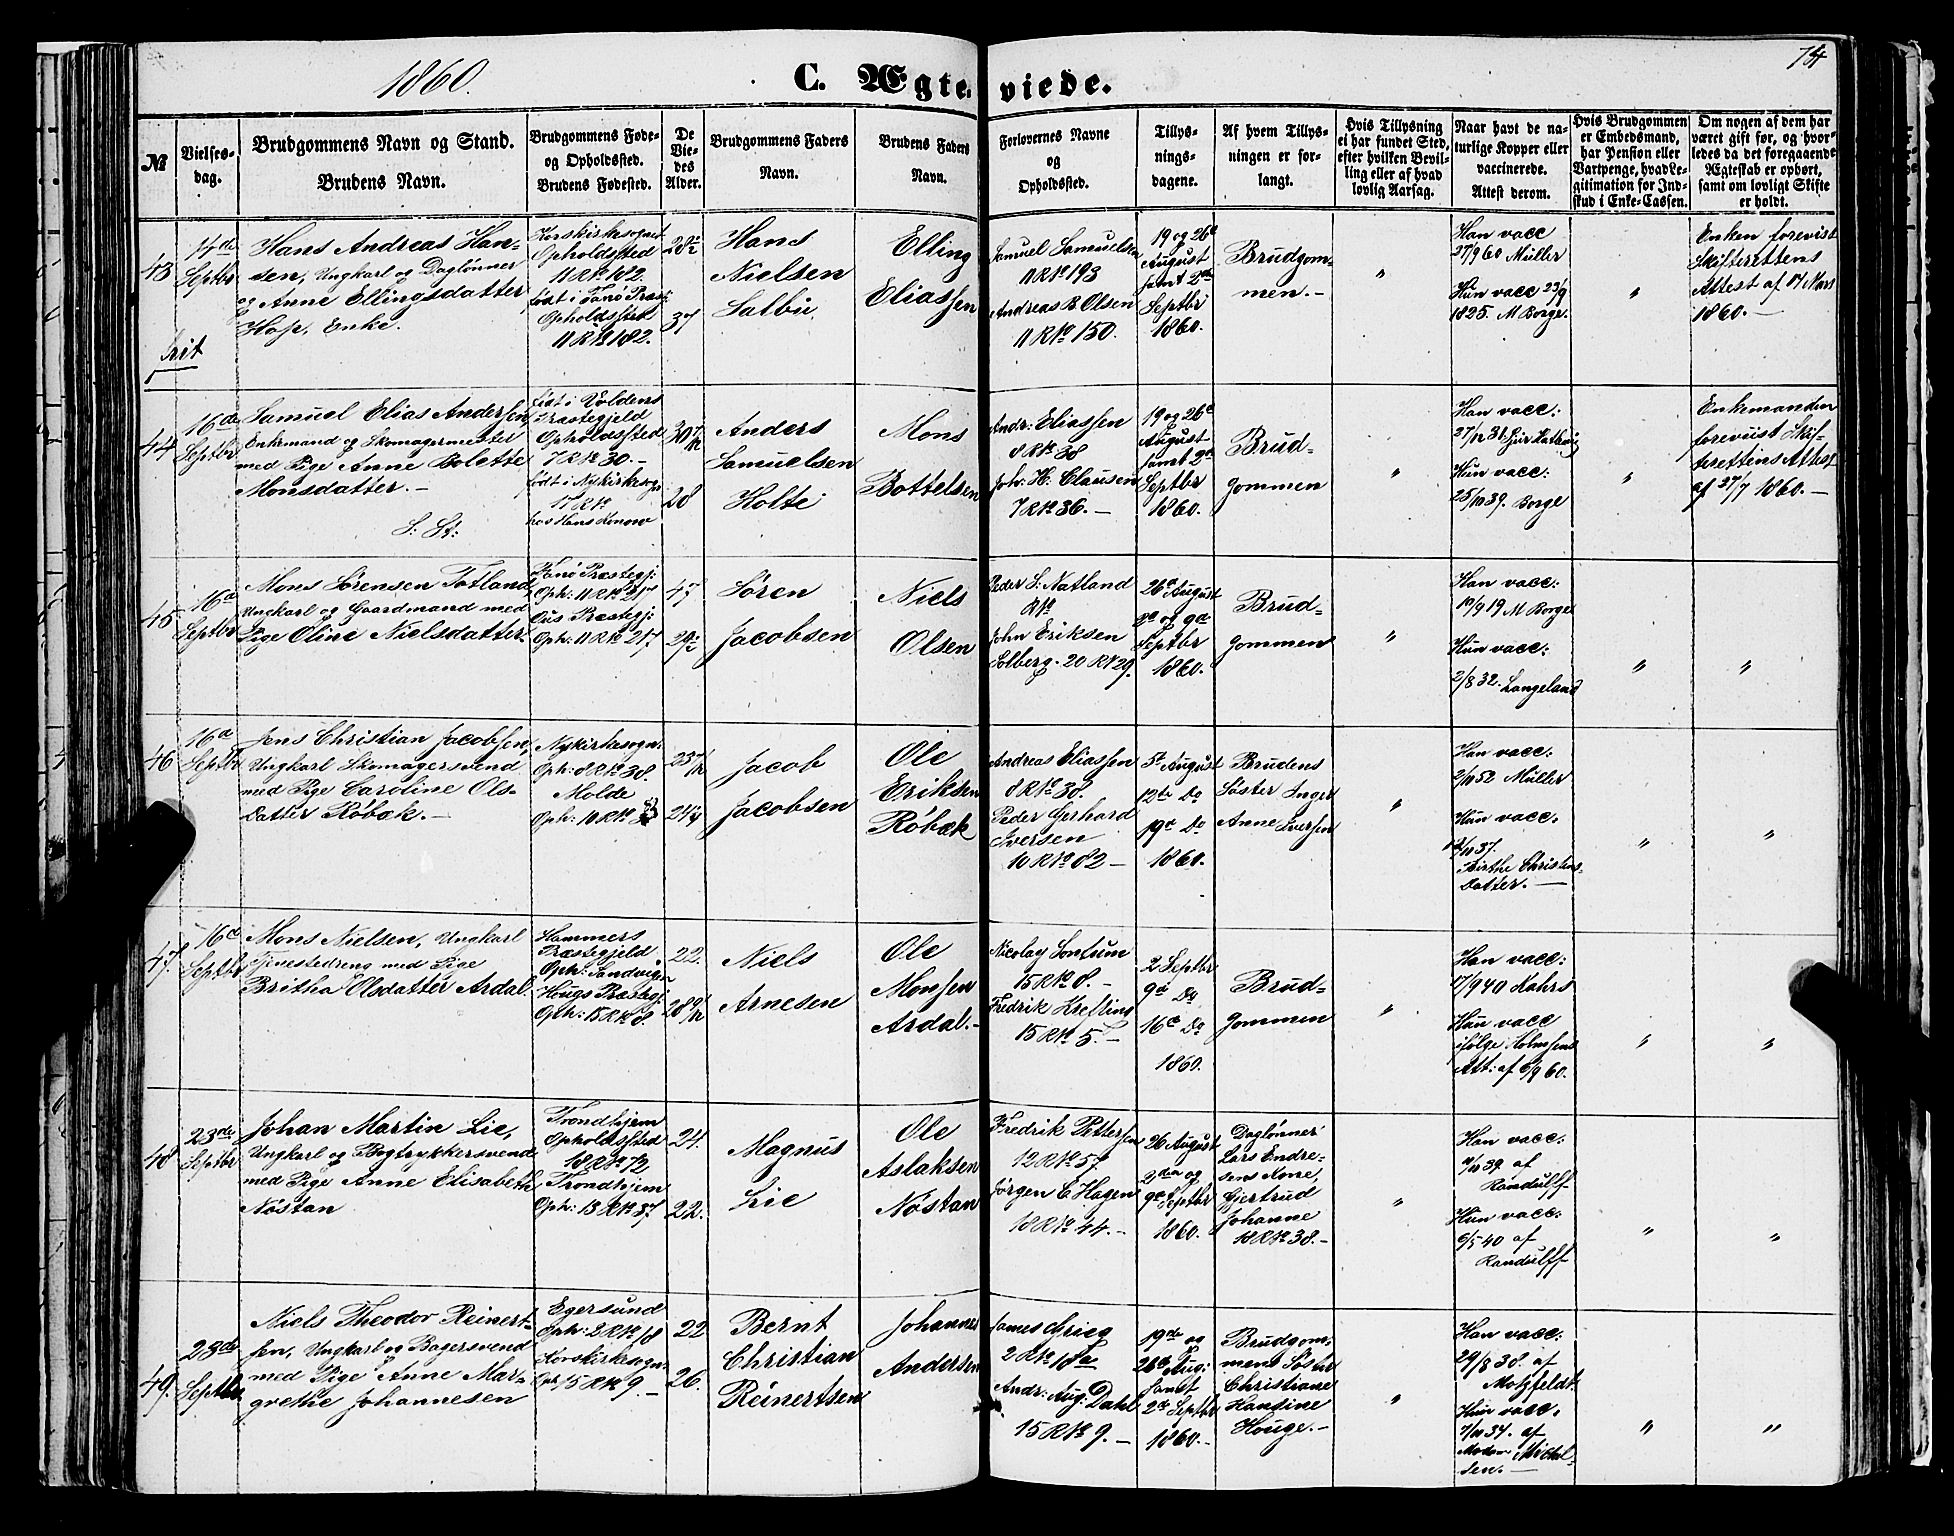 1860.
C. Ægte
viede.
74
№
Vielses-
dag.
Brudgommens Navn og Stand.
Brudens Navn.
Brudgommens Føde-
og Opholdssted.
Brudens Fødested.
De
Vie-
des
Alder.
Brudgommens Faders
Navn.
Brudens Faders
Navn.
Forlovernes Navne
og
Opholdssted.
Tillys-
nings-
dagene.
Af hvem Tillys-
ningen er for-
langt.
Hvis Tillysning
ei har fundet Sted,
efter hvilken Bevil-
ling eller af hvad
lovlig Aarsag.
Naar havt de na-
turlige Kopper eller
vaccinerede.
Attest derom.
Hvis Brudgommen
er Embedsmand,
har Pension eller
Vartpenge, hvad Le-
gitimation for Ind-
skud i Enke-Cassen.
Om nogen af dem har
været gift før, og hvor-
ledes da det foregaaende
Ægteskab er ophørt,
samt om lovligt Skifte
er holdt.
43
frit
Septbr
Hans Andreas Han-
sen, Ungkarl og Daglønner
og Anne Ellingsdatter
Hop, Enke.
Korskirkesognet
Opholdssted
11 R № 182.
født i Fanø Præstgj:
Opholdssted
11 R № 182.
28½
37
Hans
Nielsen
Salbu
Elling
Eliassen
Samuel Samuelsen
11 R № 193
Andreas B. Olsen
11 R № 150.
19 og 26de
August
samt 2den
Septbr
1860.
Brudgom-
men.-
"
Han vacc
27/9 60 Müller
Hun vacc 23/9
1825. M Borge.
"
Enken forevist
Skifterettens
Attest af 17 Mars
1860.-
44
16de
Septbr
Samuel Elias Andersen,
Enkemand og Skomagermester
med Pige Anne Bolette
Monsdatter.-
S: St:
født i Voldens
Præstegjeld
Opholdssted
7 R № 30.-
født i Nykirkesogn
17 R №
hos Hans Konow
30 7/12
28
Anders
Samuelsen
Holte
Mons
Bottelsen
Andr: Eliassen
8 R № 38
Joh: H: Clausen
7 R № 36.-
19 og 26de
August
samt 2den
Septbr
1860.
Brud-
gommen
"
Han vacc:
Hun vacc:
25/10 39. Borge
"
Enkemanden
foreviist Skif-
terettens Attest
af 27/7 1860.-
45
16de
Septbr
Mons Sørensen Totland,
Ungkarl og Gaardmand med
Pige Oline Nielsdatter.
Fanø Præstegj:
Oph: 11 R № 217
Ous Præstegj:
Oph: 11 R № 217
47
24½
Søren
Jacobsen
Niels
Olsen
Peder S. Natland
R №
John Eriksen
Solberg. 20 R № 29.
26de August
2de og 9de
Septbr
1860.
Brud-
gommen
"
Han vacc:
19/9 19 M Borge
Hun vacc:
2/8 32. Langeland
"
"
46
16de
Septbr
Jens Christian Jacobsen,
Ungkarl Skomagersvend
med Pige Caroline Ols-
datter Røbæk.-
Nykirkesogn:
Oph: 8 R № 38.
Molde
Oph: 10 R №
23 7/12
24¼
Jacob
Jacobsen
Ole
Eriksen
Røbæk
Andreas Eliassen
8 R № 38.
Peder Gerhard
Iversen
10 R № 82 -
5te August
12te Do
19de Do
1860.
Brudens
Søster Inger
Anne Iversen
"
Han vacc:
2/10 52 Müller
Hun vacc.
Birthe Christens-
datter.-
"
"
47.
16de
Septbr
Mons Nielsen, Ungkarl
Tjenestedreng med Pige
Britha Olsdatter Ardal.
Hammers
Præstegjeld.
Oph: Sandvigen
Hougs Præstegj:
Oph: 15 R № 8.
22.
28 9/12
Niels
Arnesen
Ole
Monsen
Ardal.-
Nicolay Sontum
15 R № 8.-
Fredrik Krelling
15 R № 5.-
2 Septbr
9de Do
16de Do
1860.
Brud-
gommen
"
Han vacc:
17/9 40 Kahrs
Hun vacc
ifølge Holmsens
Att: af 6/9 60.
"
"
48
23de
Septbr
Johan Martin Lie,
Ungkarl og Bogtrykkersvend
med Pige Anne Elisabeth
Nøstan
Trondhjem
Opholdssted
18 R № 72
Trondhjem
Oph: 13 R № 37
24.
22.
Magnus
Lie
Ole
Aslaksen
Nøstan
Fredrik Pettersen
12 R № 57.
Jørgen C Hagen
18 R № 44.-
26 August
2den og
9de Septbr
1860.
Dagløнner
Lars Endre-
sens Kone,
Gjertrud
Johanne
18 R № 38.-
"
Han vacc:
9/10 39 af
Randulff
Hun vacc:
6/5 40 af
Randulff
"
"
49.
23de
Septbr
Niels Theodor Reinert-
sen, Ungkarl og Bagersvend
med Pige Anne Mar-
grethe Johannesen
Egersund
Oph: 2 R № 18
Korskirkesogn:
Oph: 15 R № 9.-
22
26.
Bernt
Christian
Reinertsen
Johannes
Andersen
James Grieg
2 R № 18a
Andr: Aug: Dahl
15 R № 9.-
19de og
26de Aug:
samt
2de Septbr
1860.-
Brudgom-
mens Søster
Christiane
Hansine
Houge.-
"
Han vacc:
29/8 38. af
Motzfeldt.
Hun vacc.
7/10 34. af
Michal-
sen.-
"
"